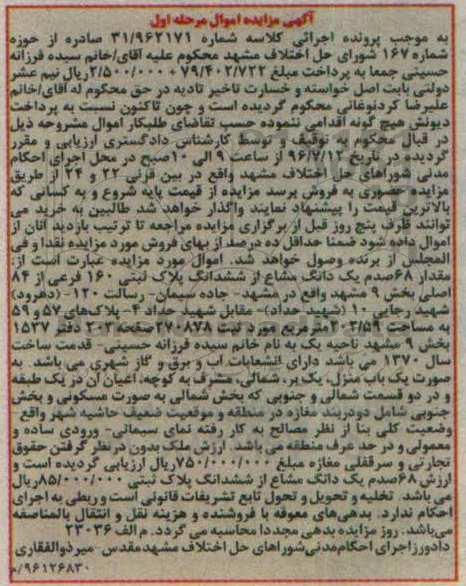 آگهی مزایده اموال مرحله اول
به موجب پرونده اجرائی کلاسه شماره ۳۱/۹۶۲۱۷۱ صادره از حوزه
شماره ۱۶۷ شورای حل اختلاف مشهد محکوم علیه آقای/خانم سیده فرزانه
حسینی جمعا به پرداخت مبلغ ۷۹/۴۰۲/۷۲۲ + ۲/۵۰۰/۰۰۰ریال نیم عشر
دولتی بابت اصل خواسته و خسارت تاخیر تادیه در حق محکوم له آقای/خانم
علیرضا کردنوغانی محکوم گردیده است و چون تاکنون نسبت به پرداخت
دیونش هیچ گونه اقدامی ننموده حسب تقاضای طلبکار اموال مشروحه ذیل
در قبال محکوم به توقیف و توسط کارشناس دادگستری ارزیابی و مقرر
گردیده در تاریخ ۹۶/۷/۱۲ از ساعت ۹ الی ۱۰صبح در محل اجرای احکام
مدنی شوراهای حل اختلاف مشهد واقع در بین قرنی ۲۲ و ۲۴ از طریق
مزایده حضوری به فروش برسد مزایده از قیمت پایه شروع و به کسانی که
بالاترین قیمت را پیشنهاد نمایند واگذار خواهد شد. طالبین به خرید می
توانند ظرف پنج روز قبل از برگزاری مزایده مراجعه تا ترتیب بازدید آنان از
اموال داده شود ضمنا حداقل ده درصد از بهای فروش مورد مزایده نقدا و فی
المجلس از برنده وصول خواهد شد. اموال مورد مزایده عبارت است از:
مقدار ۶۸صدم یک دانگ مشاع از ششدانگ پلاک ثبتی ۱۶۰ فرعی از ۸۴
اصلی بخش ۹ مشهد واقع در مشهد- جاده سیمان- رسالت ۱۲۰- (دهرود)
شهید رجایی ۱۰ (شهید حداد)- مقابل شهید حداد ۴- پلاک‌های ۵۷ و ۵۹
به مساحت ۲۰۲/۵۹مترمربع مورد ثبت ۲۷۰۸۷۸صفحه ۲۰۳ دفتر ۱۵۳۷
بخش ۹ مشهد ناحیه یک به نام خانم سیده فرزانه حسینی- قدمت ساخت
سال ۱۳۷۰ می باشد دارای انشعابات آب و برق و گاز شهری می باشد. به
صورت یک باب منزل، یک بر، شمالی، مشرف به کوچه، اعیان آن در یک طبقه
و در دو قسمت شمالی و جنوبی که بخش شمالی به صورت مسکونی و بخش
جنوبی شامل دودربند مغازه در منطقه و موقعیت ضعیف حاشیه شهر واقع-
وضعیت کلی بنا از نظر مصالح به کار رفته نمای سیمانی- ورودی ساده و
معمولی و در حد عرف منطقه می باشد. ارزش ملک بدون در نظر گرفتن حقوق
تجارتی و سرقفلی مغازه مبلغ ۷۵۰/۰۰۰/۰۰۰ریال ارزیابی گردیده است و
ارزش ۶۸صدم یک دانگ مشاع از ششدانگ پلاک ثبتی ۸۵/۰۰۰/۰۰۰ریال
می باشد. تخلیه و تحویل و تحول تابع تشریفات قانونی است و ربطی به اجرای
احکام ندارد. بدهی‌های معوقه با فروشنده و هزینه نقل و انتقال بالمناصفه
می‌باشد. روز مزایده بدهی مجددا محاسبه می گردد. م الف ۲۳۰۳۶
دادورز اجرای احکام مدنی شوراهای حل اختلاف مشهد مقدس- میر ذوالفقاری
۹۶۱۲۶۸۳۰/م